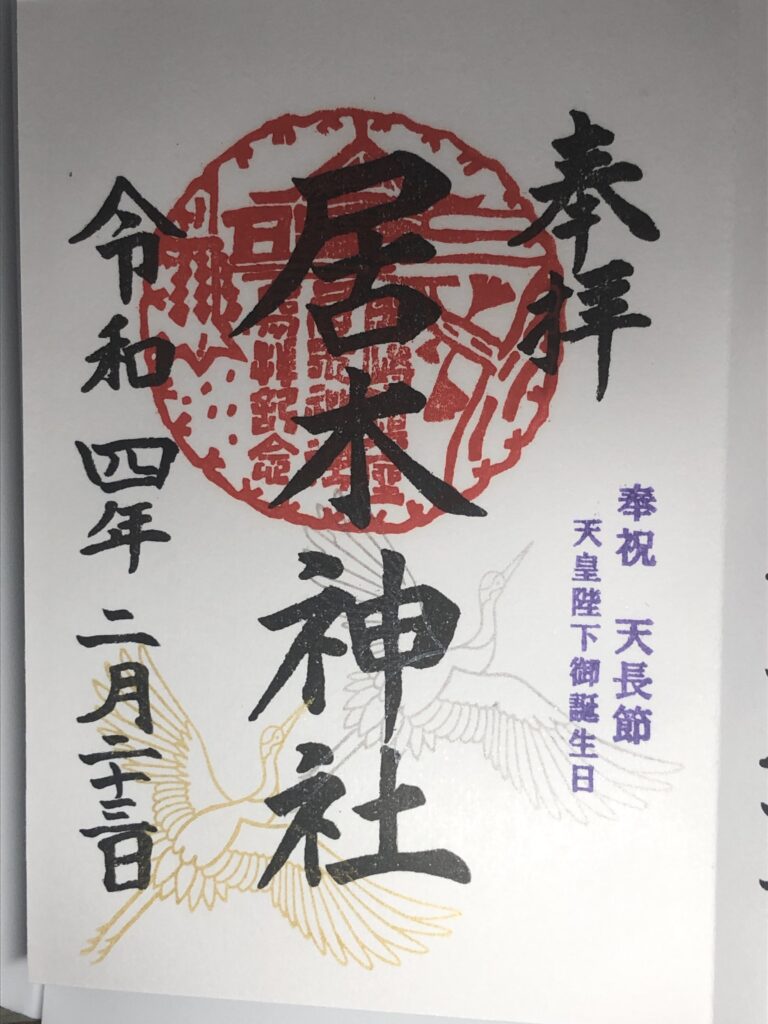 奉拝
奉祝 天長節
天皇陛下御誕生日
居木神社
令和四年二月二十三日